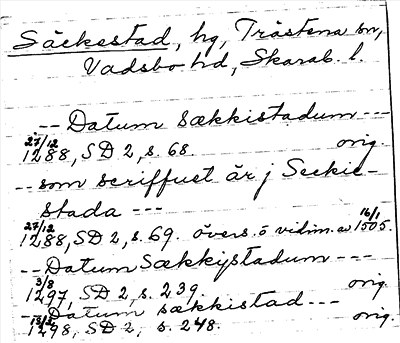 Säckestad, hg, Trästena sn,
Vadsbo hd, Skarab. l.
-- Datum sækkistadum ---
27/12 1288, SD 2, s. 68. orig.
-- som scriffuet är j Seckie-
stada ---
27/12 1288, SD 2, s. 69. övers. o vidim. av 16/1 1505.
-- Datum Sækkystadum ---
3/8 1297, SD 2, s. 239 orig.
-- Datum sækkistad ---
1298, SD 2, s. 248. orig.